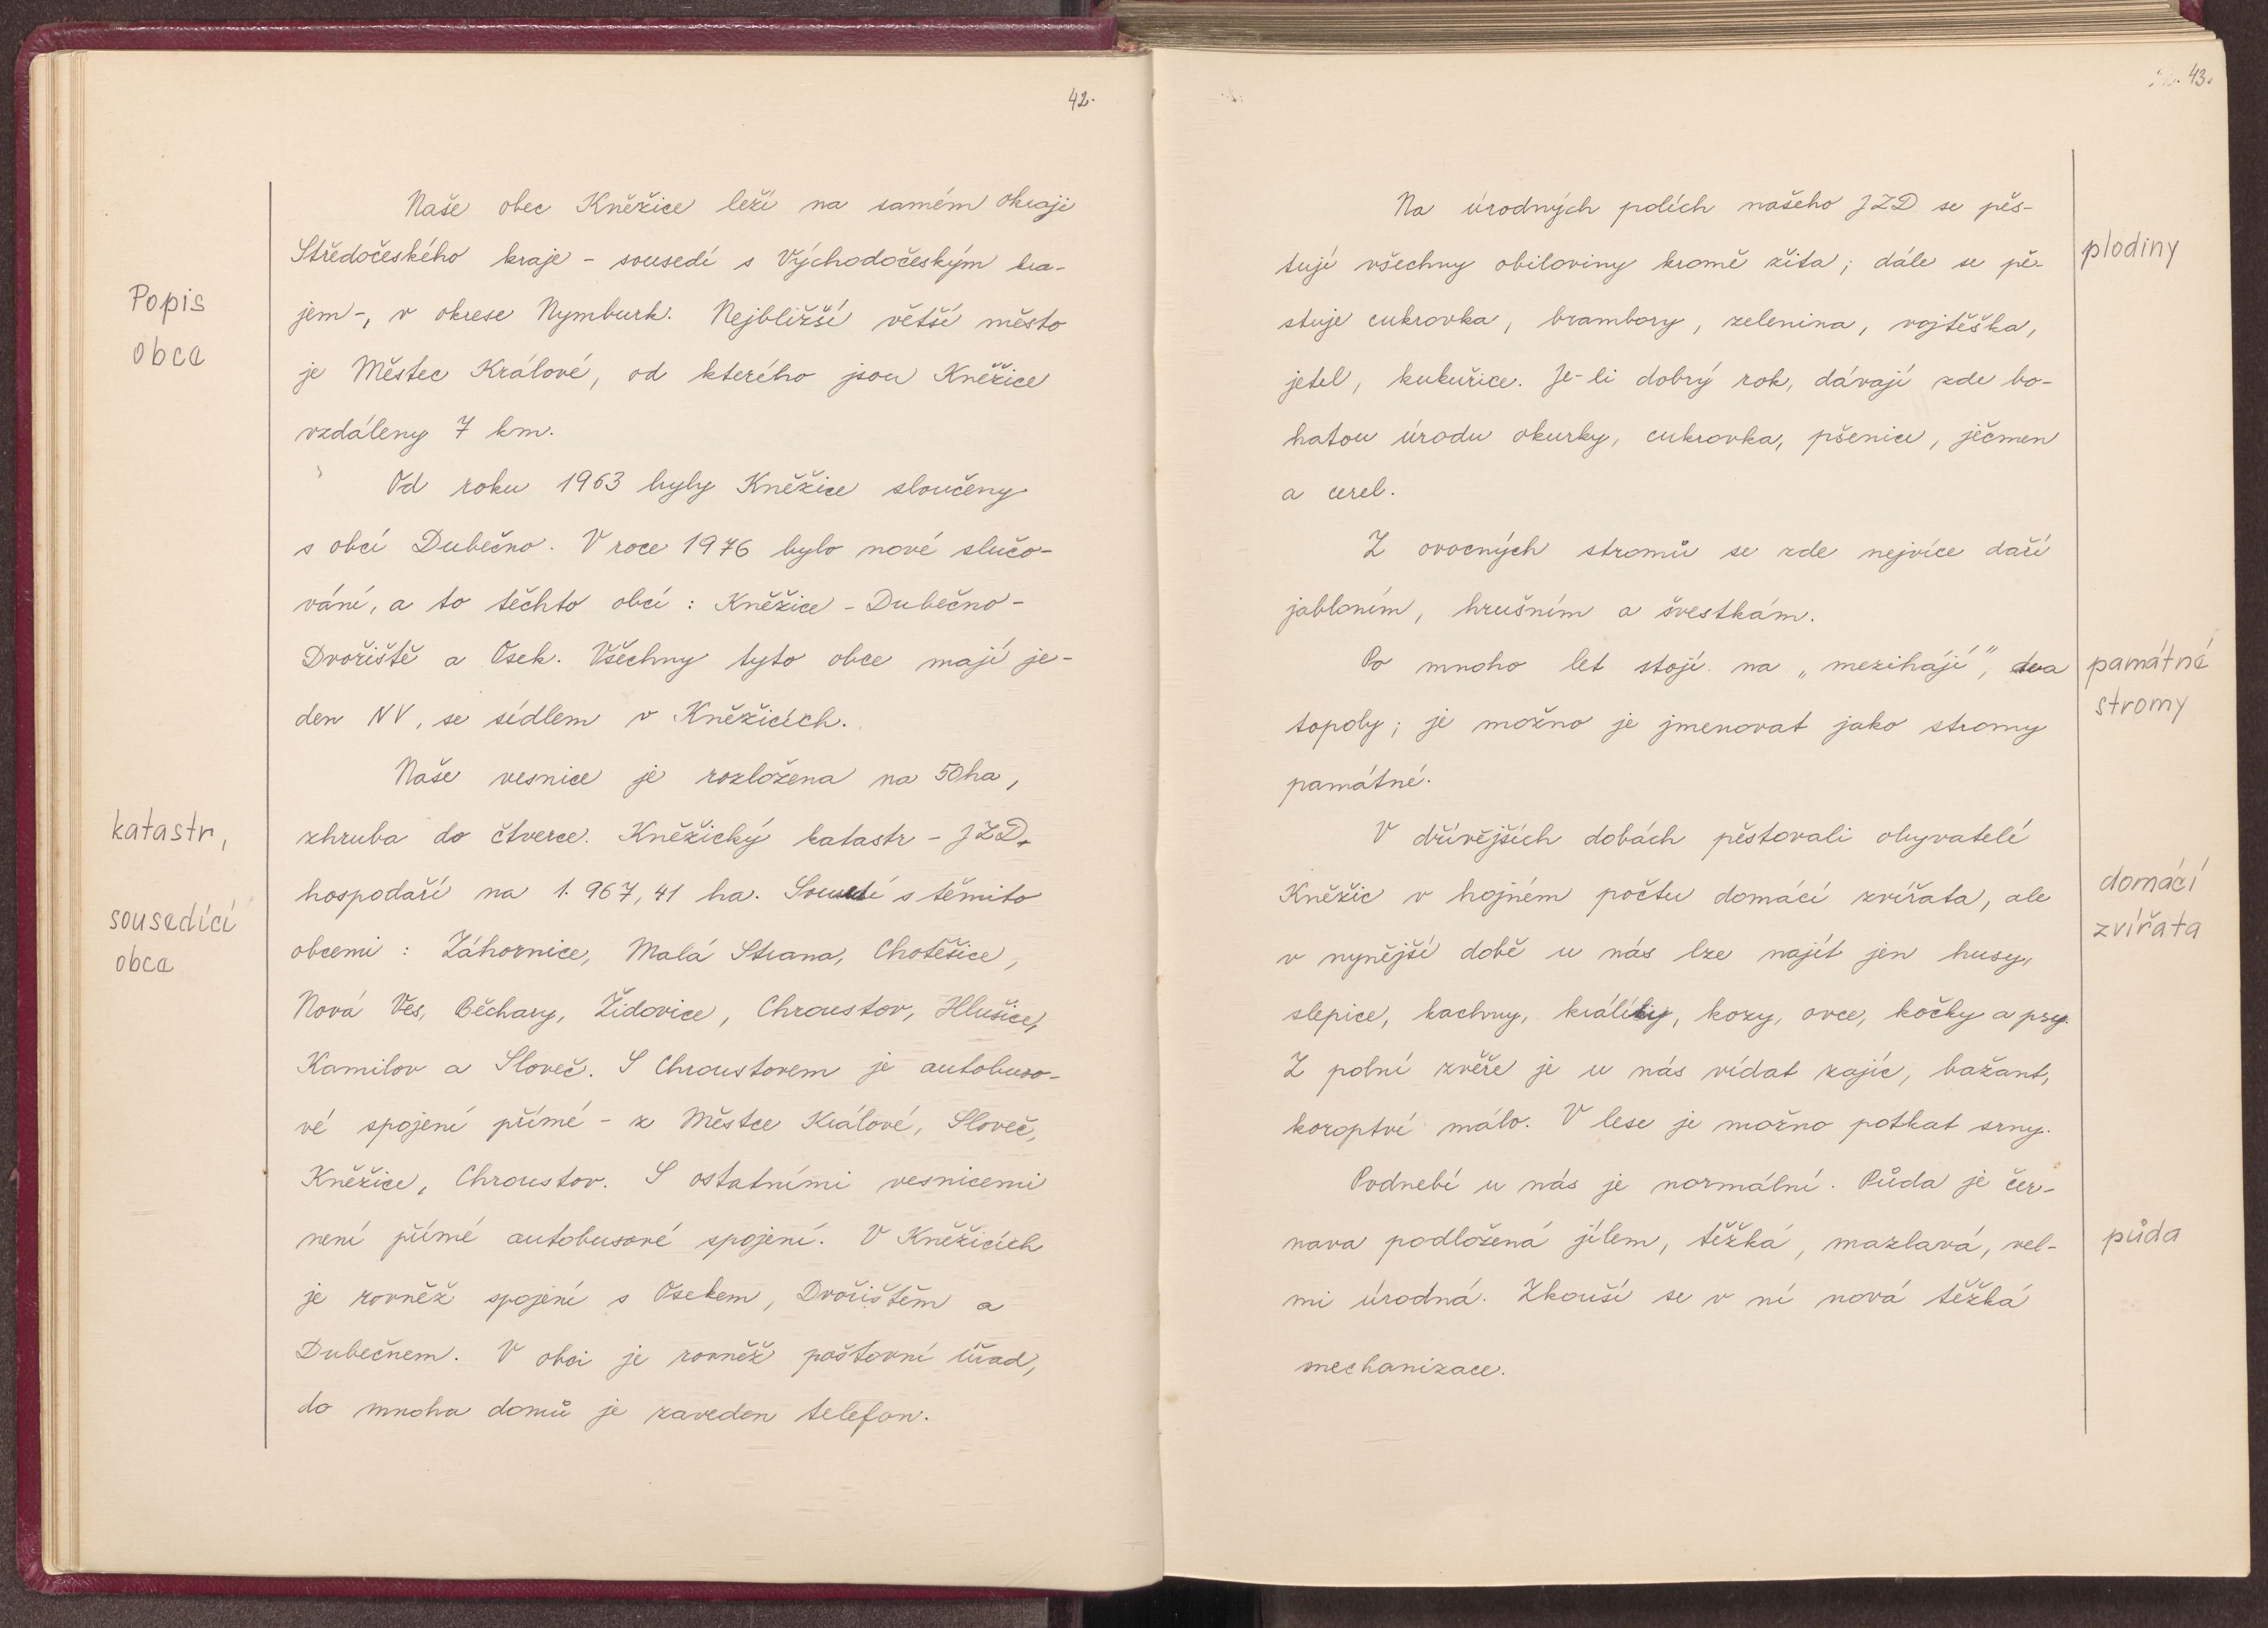 42.
Popis
obce
Naše obec Kněžice leží na samém okraji
Středočeského kraje - sousedí s Východočeským kra-
jem -, v okrese Nymburk. Nejbližší větší město
je Městec Králové, od kterého jsou Kněžice
vzdáleny 7 km.
Od roku 1963 byly Kněžice sloučeny
s obcí Dubečno. V roce 1976 bylo nové slučo-
vání, a to těchto obcí : Kněžice - Dubečno -
Dvořiště a Osek. Všechny tyto obce mají je-
den NV, se sídlem v Kněžicích.
katastr,
sousedící
obce
Naše vesnice je rozložena na 50 ha,
zhruba do čtverce. Kněžický katastr - JZD,
hospodaří na 1.967,41 ha. Sousedí s těmito
obcemi : Záhornice, Malá Strana, Chotěšice,
Nová Ves, Běchary, Židovice, Chroustov, Hlušice,
Kamilov a Sloveč. S Chroustovem je autobuso-
vé spojení přímé - z Městce Králové, Sloveč,
Kněžice, Chroustov. S ostatními vesnicemi
není přímé autobusové spojení. V Kněžicích
je rovněž spojení s Osekem, Dvořištěm a
Dubečnem. V obci je rovněž poštovní úřad,
do mnoha domů je zaveden telefon.
43.
Na úrodných polích našeho JZD se pěs-
tují všechny obiloviny kromě žita; dále se pě-
stuje cukrovka, brambory, zelenina, vojtěška,
jetel, kukuřice. Je-li dobrý rok, dávají zde bo-
hatou úrodu okurky, cukrovka, pšenice, ječmen
a cerel.
plodiny
Z ovocných stromů se zde nejvíce daří
jabloním, hrušním a švestkám.
Po mnoho let stojí na „mezihájí", dva
topoly; je možno je jmenovat jako stromy
památné.
památné
stromy
V dřívějších dobách pěstovali obyvatelé
Kněžic v hojném počtu domácí zvířata, ale
v nynější době u nás lze najít jen husy,
slepice, kachny, králíky, kozy, ovce, kočky a psy.
Z polní zvěře je u nás vídat zajíc, bažant,
koroptví málo. V lese je možno potkat srny.
domácí
zvířata
Podnebí u nás je normální. Půda je čer-
nava podložená jílem, těžká, mazlavá, vel-
mi úrodná. Zkouší se v ní nová těžká
mechanizace.
půda